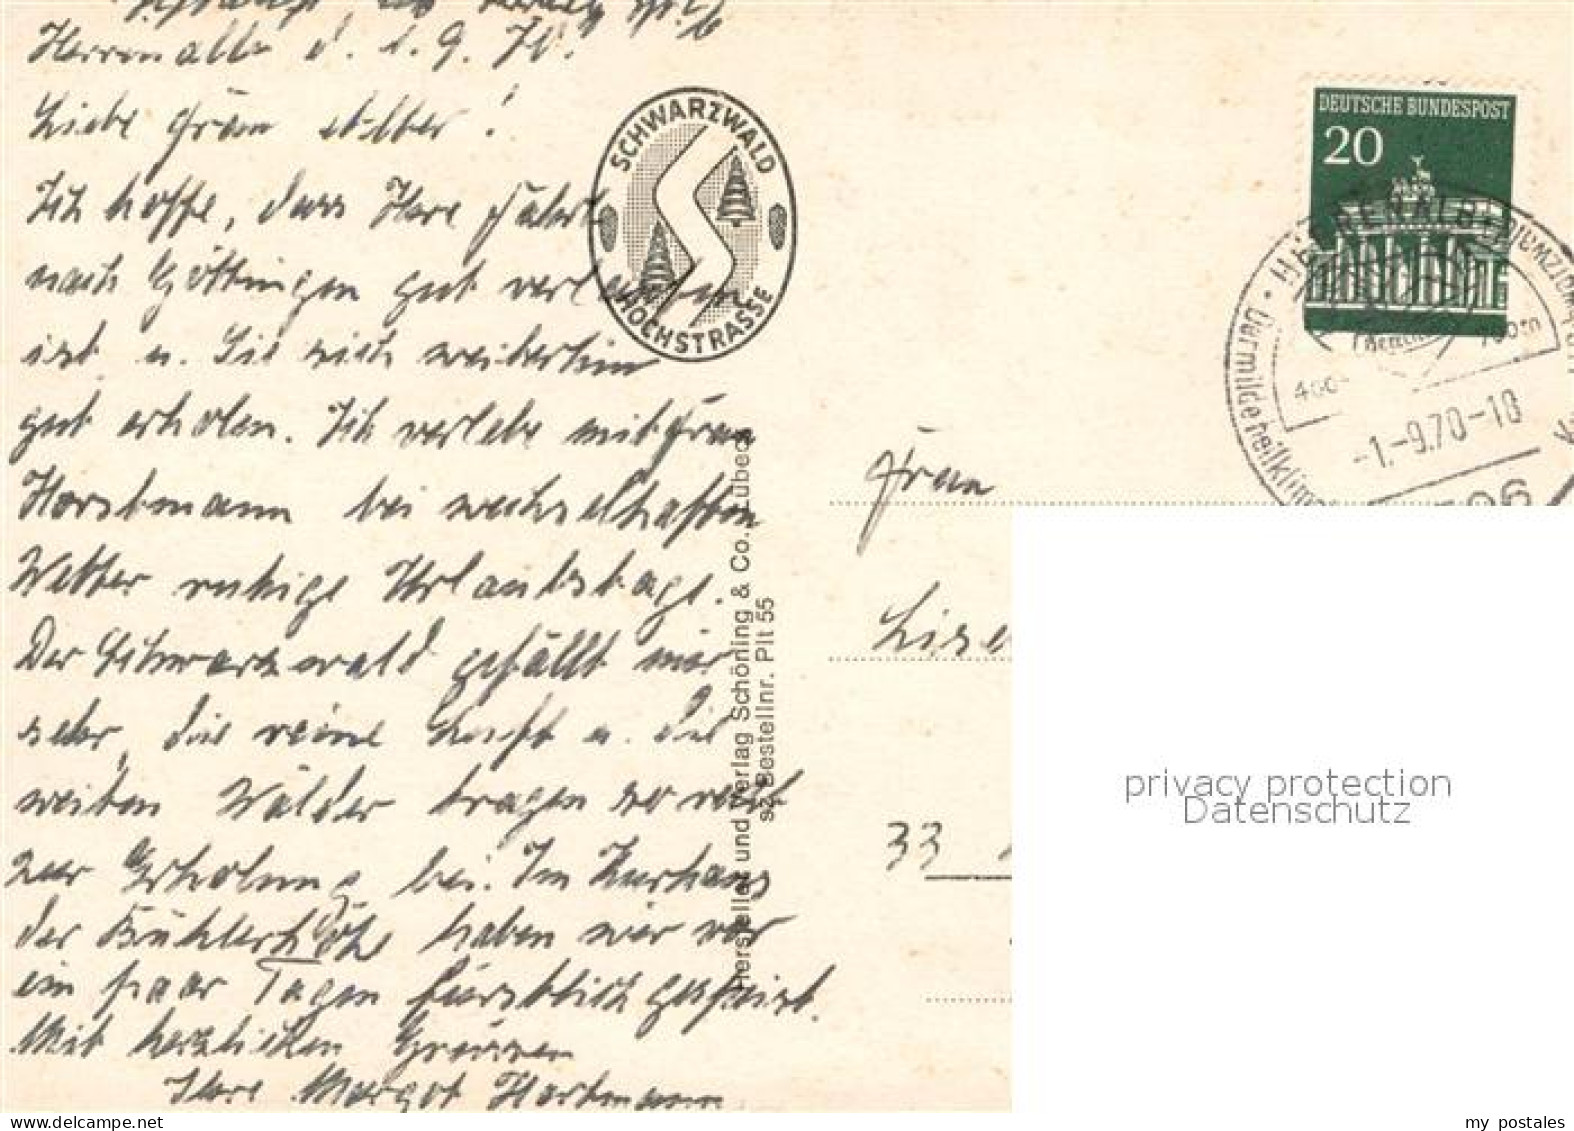 Herrenalb d. 1. 9. 70.
Liebe Frau !
Ich hoffe, dass Ihre Fahrt
nach Göttingen gut verlaufen
ist u. Sie sich weiterhin
gut erholen. Ich verlebe mit Frau
Horstmann bei wechselhaften
Wetter ruhige Urlaubstage.
Der Schwarzwald gefällt mir
sehr, die reine Luft u. die
weiten Wälder tragen so recht
zur Erholung bei. Im Kurhaus
der Bühlerhöhe haben wir vor
ein paar Tagen fürstlich gespeist.
Mit herzlichen Grüssen
Ihre Margot Hartmann
SCHWARZWALD
HOCHSTRASSE
Hersteller und Verlag Schöning & Co., Lübeck
Bestellnr. Plt 55
DEUTSCHE BUNDESPOST
20
HERRENALB
-1.-9.70-10
Frau
Lise
33
privacy protection
Datenschutz
www.delcampe.net
my postales